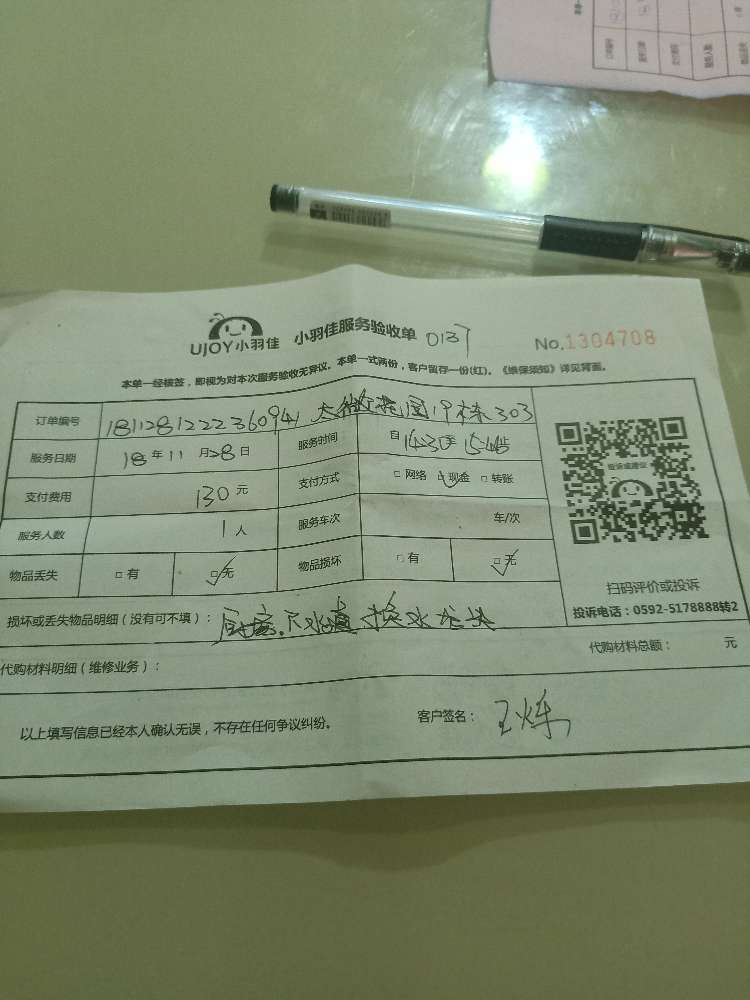 UJOY小羽佳 小羽佳服务验收单 0137 No.1304708
本单一经核签，即视为对本次服务验收无异议。本单一式两份，客户留存一份(红)。《维保须知》详见背面。
订单编号 181128122236094 花园 栋303
服务日期 18年11月28日 服务时间 自14:30至15:45止
支付费用 130元 支付方式 □网络 □现金 □转账
服务人数 1人 服务车次 车/次
物品丢失 □有 □无 物品损坏 □有 □无
投诉或建议
扫码评价或投诉
投诉电话：0592-5178888转2
损坏或丢失物品明细（没有可不填）： 下水道 换水龙头
代购材料明细（维修业务）： 代购材料总额： 元
以上填写信息已经本人确认无误，不存在任何争议纠纷。 客户签名： 王